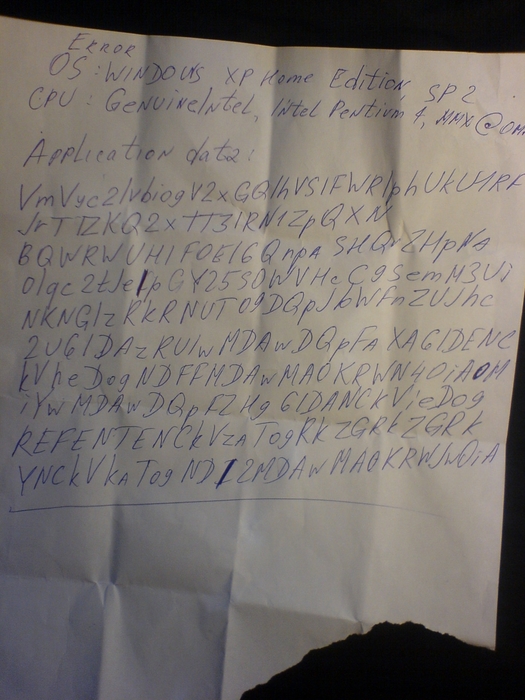 Error
OS: WINDOWS XP Home Edition, SP2
CPU: GenuineIntel, Intel Pentium 4, MMX @ 0MH
Application data:
VmVyc2lvbiogV2xGQlhVSlFWRlphUkU1RF
JrTTZKQ2xTT3lRN1ZpQXN
BQWRWUHI F0El6QnpA SHQrZHpNA
0lqc2tJelpGY25SOWVHcC9SemM3Ui
NKNGlzRkRNUT09DQpJbWFnZUJhc
2U6IDAzRUIwMDAwDQpFAXA6IDENC
kVheDogNDFFMDAwMA0KRWN4OiA0M
iYwMDAwDQpFZHg6IDANCkVieDog
REFENTENCkVzaTogRkZGRkZGRk
YNCkVkaTogNDI2MDAwMA0KRWJwOiA